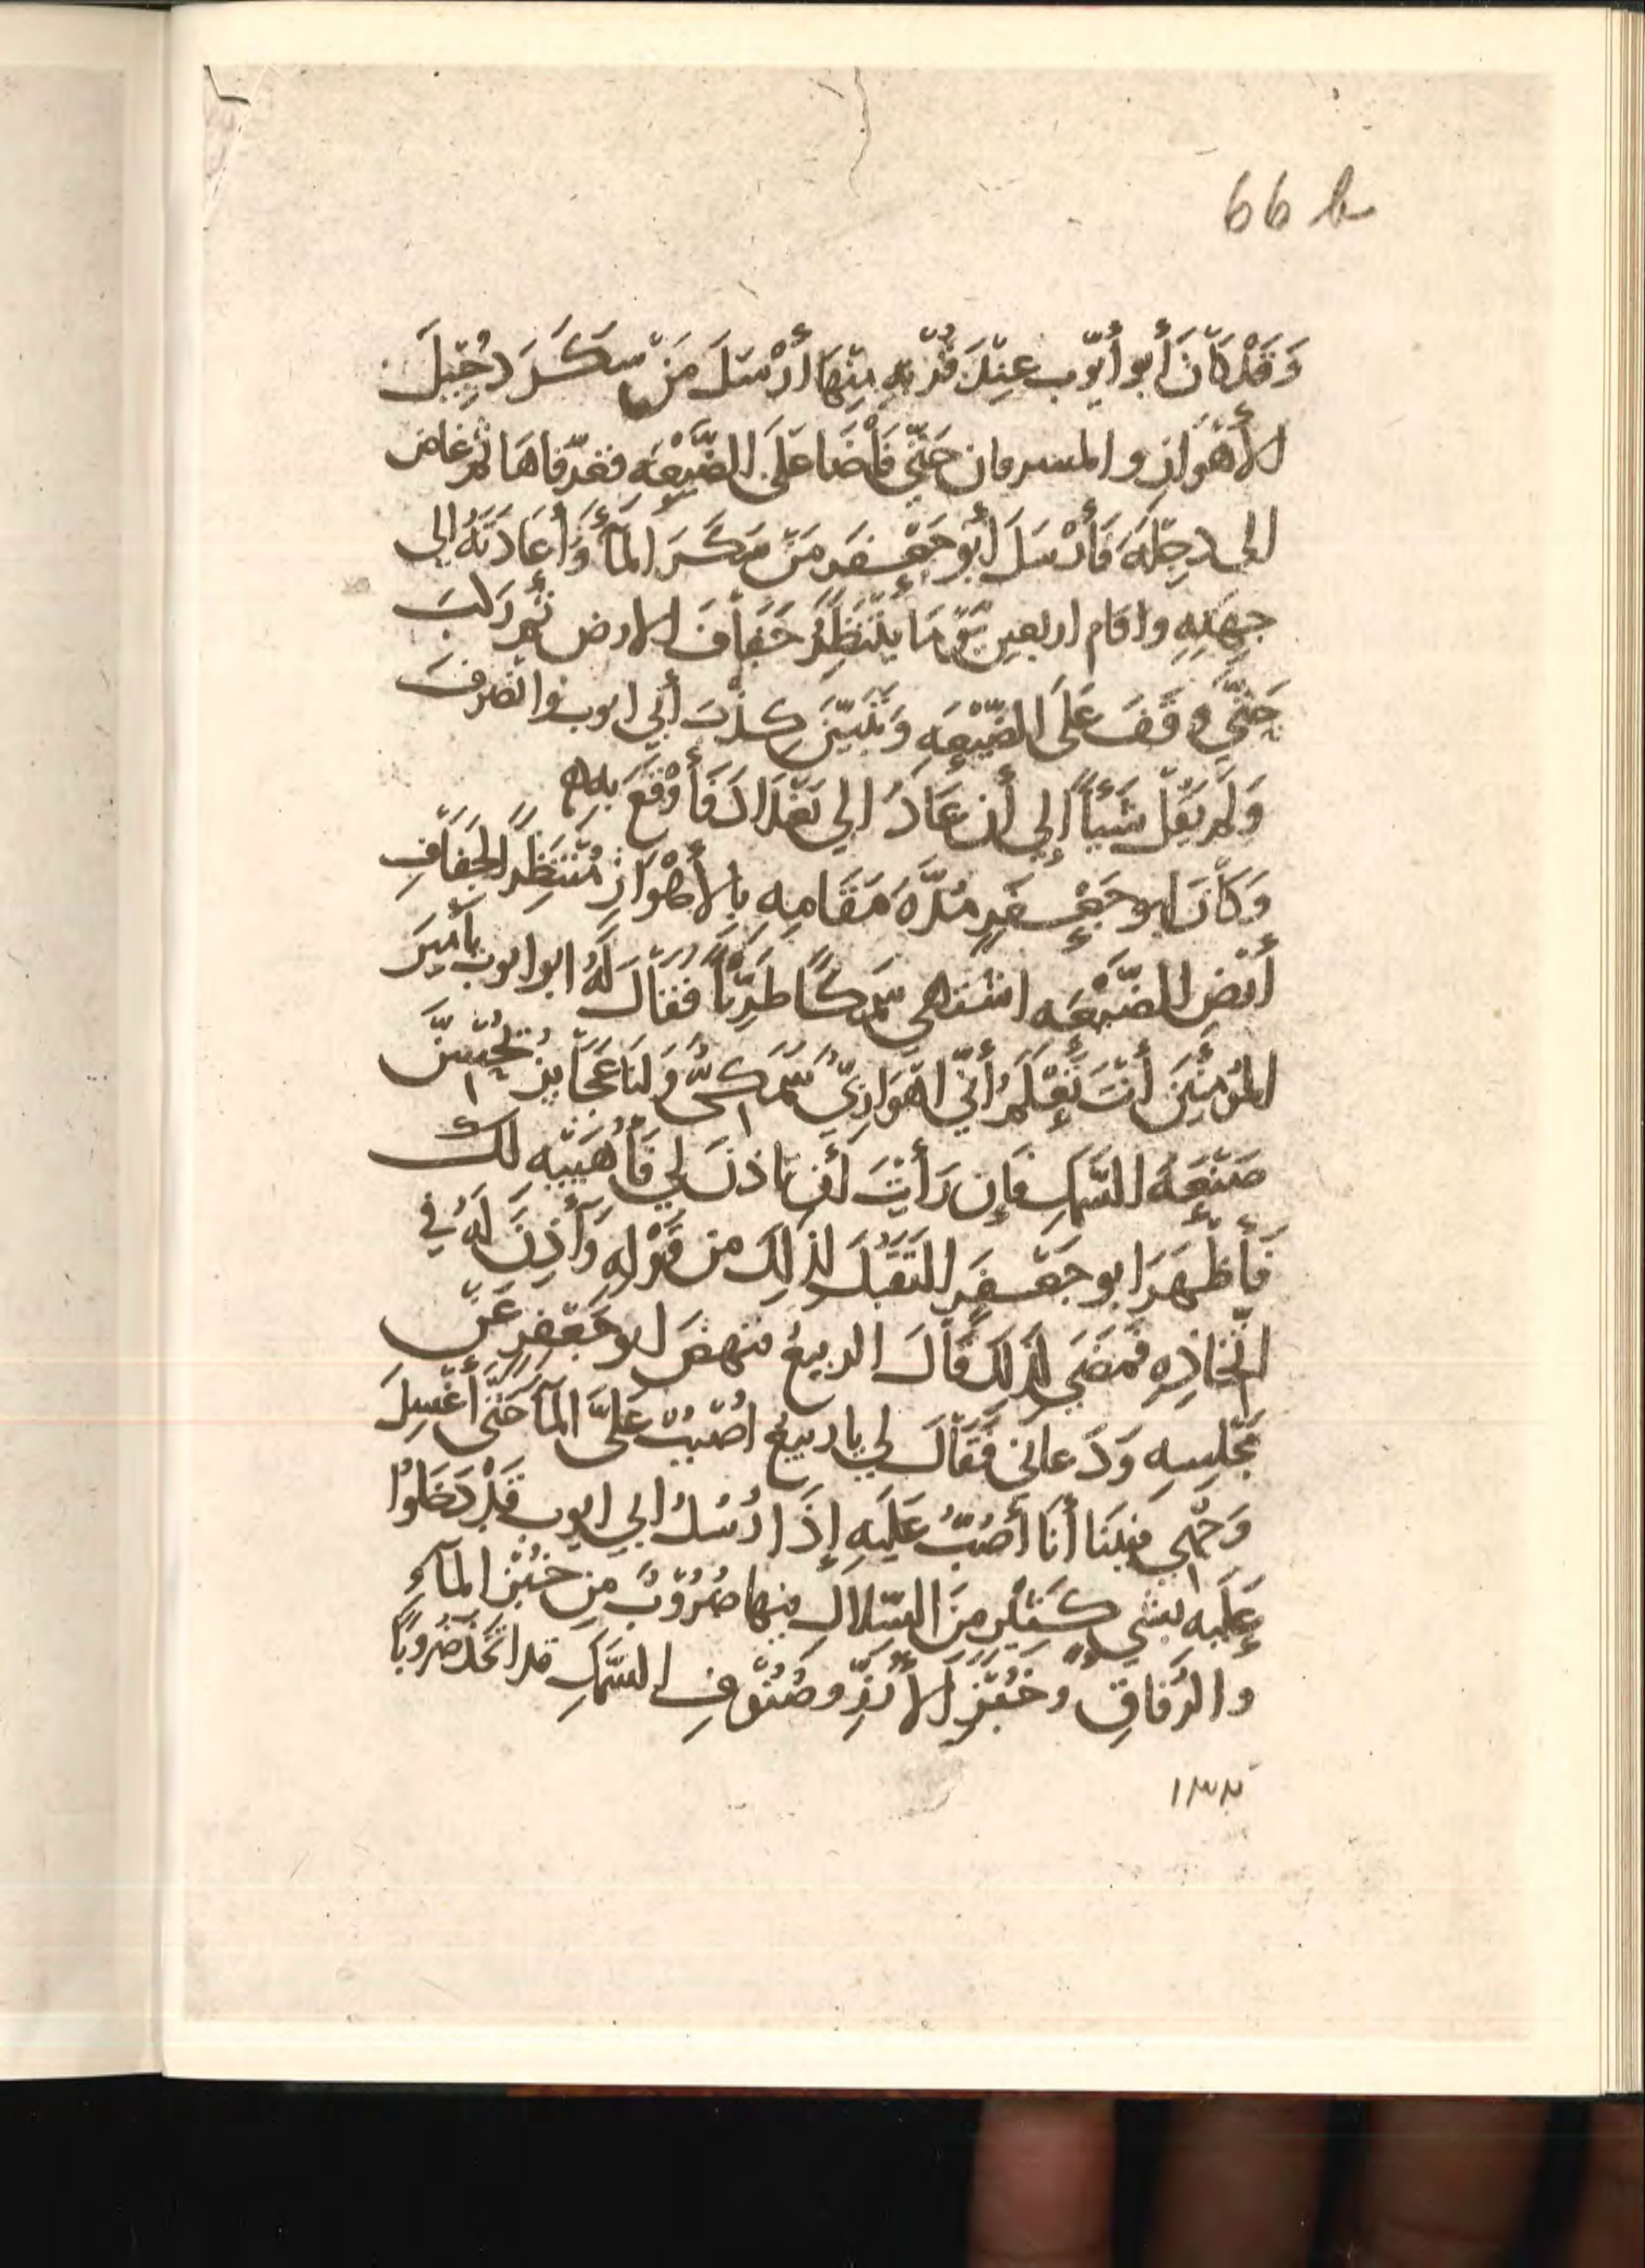 66 b
وَقَدْ كَانَ أَبو أَيّوب عِنْدَ قُرْبِهِ مِنْهَا أَرْسَلَ مَنْ سَكَرَ دُجَيْلَ
الأَهْوَازِ والمسرقان حَتَّى فَاضَا عَلَى الضَّيْعَهِ فغرّقاهَا ثم غاض
الى دِجلَهَ فَأَرْسَلَ أَبو جَعْفَر مَنْ سَكَرَ المَآءَ وَأَعَادَتَهُ الى
جِهَتِهِ واقام اربعين يَوْمًا يَنْتَظِرُ جَفَافَ الارض ثُمَّ رَكبَ
حَتَّى وقَفَ عَلَى الضَّيْعَهِ وَتَبَيَّنَ كِذْبَ أَبي ايوب وانْصَرفَ
وَلَم يَقُلْ شَيْأً إِلي أَن عَادَ الي بَغْدَادَ فَأَوْقَعَ بِهِ
وَكَانَ ابو جَعْفَرٍ مُدَّهَ مَقَامِهِ بِالأَهْوَازِ مُنْتَظِرًا لِجَفَافِ
أَرْضِ الضَّيْعَهِ اشتهى سَمَكًا طَرِيًّا فَقَالَ لَهُ ابو ايوب يا أَميرَ
المُؤْمِنينَ أَنْتَ تَعْلَمُ أَنّي اهْوَازِيٌّ سَمَكيٌّ وَلنَا عَجَايز يُحْسِنَّ
صَنْعَهَ السَّمَكِ فَإِن رَأَيْتَ أَن تاذنَ لي فَأُهَيِّيه لك
فَأَظْهَرَ ابو جَعْفَرٍ التَقَبُّلَ لِذلِكَ من قَوْلِهِ وَأَذِنَ لَهُ في
اتّخاذِهِ فَمَضَى لِذَلِكَ قَالَ الربيعُ فنهضَ ابو جَعْفَرٍ عَنْ
مَجْلِسِهِ وَدَعاني فَقَالَ لي يا رَبيعُ اصْبُبْ عَلَيَّ المَآءَ حَتَّى أَغْسِلَ
وَجْهِي فبَيْنَا أَنَا أَصُبُّ عَلَيهِ إِذَا رُسُلُ ابي ايوب قَدْ دَخَلُوا
عَلَيه بشي كَثيْرٍ مِنَ السّلالِ فيها ضُرُوْبٌ مِن خُبْزِ المَآءِ
والرُقاقِ وخُبْزِ الأُرْزِ وصُنُوْفِ السَّمَكِ قد اتَّخَذَ ضُرُوبًا
١٣٢